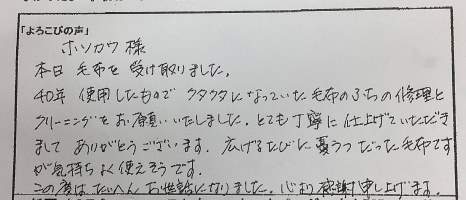 「よろこびの声」
ホソカワ様
本日 毛布を受け取りました。
40年 使用したもので クタクタになっていた毛布のふちの修理と
クリーニングをお願いいたしました。とても丁寧に仕上げていただき
まして ありがとうございます。広げるたびに憂うつだった毛布です
が気持ちよく使えそうです。
この度はたいへんお世話になりました。心より感謝申し上げます。